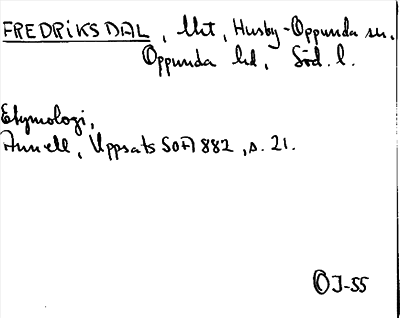 FREDRIKSDAL, Uht, Husby-Oppunda sn,
Oppunda hd, Söd. l.
Etymologi,
Annell, Uppsats SOFI 882, s. 21.
OJ-55